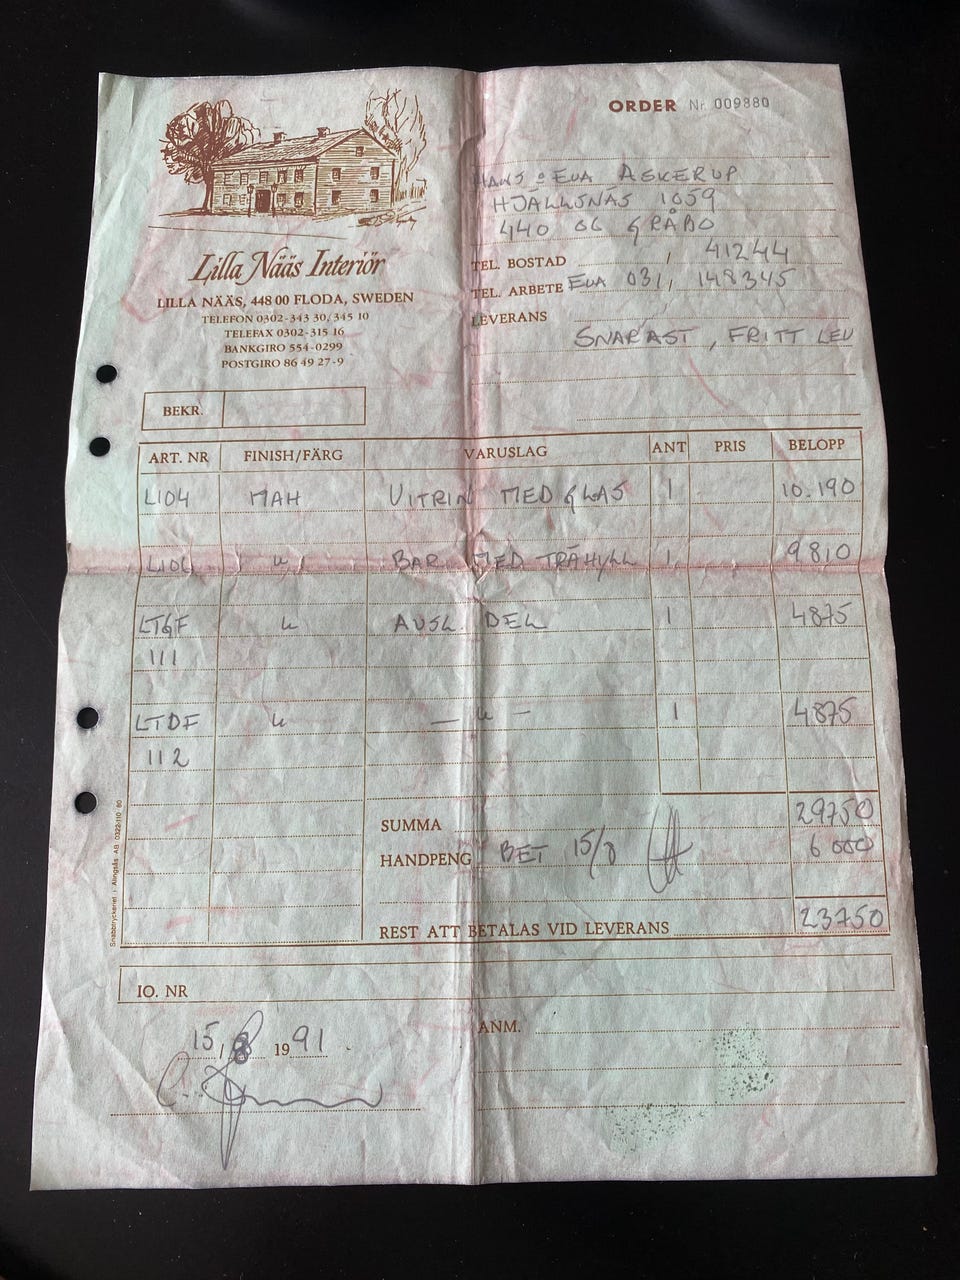 ORDER Nr 009880
HANS o EVA ASKERUP
HJÄLLSNÄS 1059
440 06 GRÅBO
TEL. BOSTAD / 41244
TEL. ARBETE EVA 031 / 148345
LEVERANS
SNARAST, FRITT LEV
Lilla Nääs Interiör
LILLA NÄÄS, 448 00 FLODA, SWEDEN
TELEFON 0302-343 30/345 10
TELEFAX 0302-315 16
BANKGIRO 554-0299
POSTGIRO 86 49 27-9
BEKR.
ART. NR FINISH/FÄRG VARUSLAG ANT PRIS BELOPP
L104 MAH VITRIN MED GLAS 1 10.190
L106 u BAR MED TRÄHYLL 1 9810
LTGF u AVSL. DEL 1 4875
111
LTDF u — u — 1 4875
112
SUMMA 29750
HANDPENG BET 15/8 6000
REST ATT BETALAS VID LEVERANS 23750
IO. NR
15 / 8 1991
ANM.
Snabbtryckeriet i Alingsås AB 0322-110 80